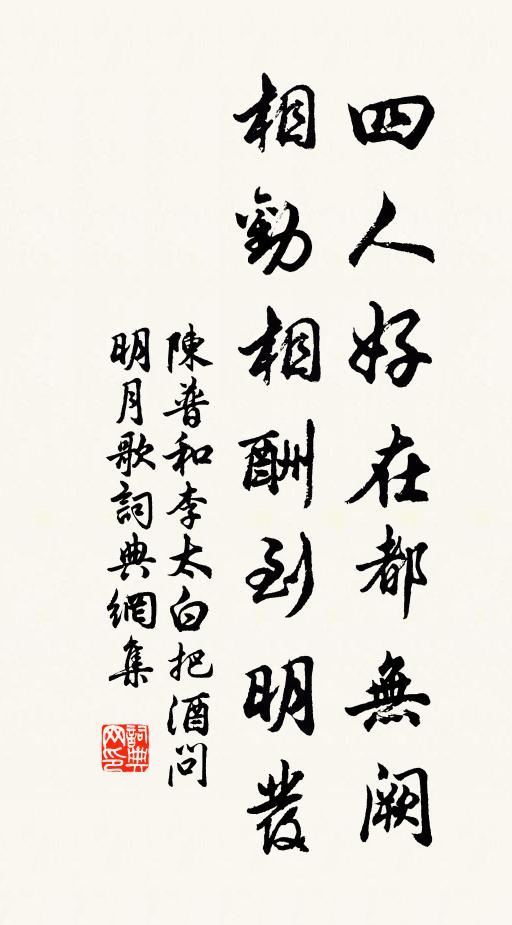 四人好在都無闕
相勸相酬到明發
陳普和李太白把酒問
明月歌詞典網集
詞典
网印